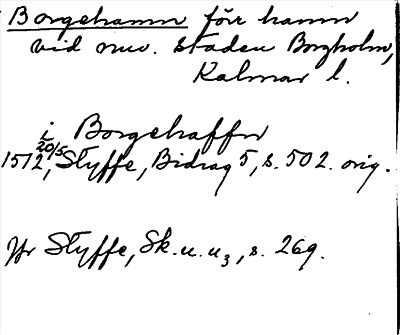 Borgehamn förr hamn
vid nuv. staden Borgholm,
Kalmar l.
i Borgehaffn
1512 20/5, Styffe, Bidrag 5, s. 502. orig.
Jfr Styffe, Sk. u. u3, s. 269.